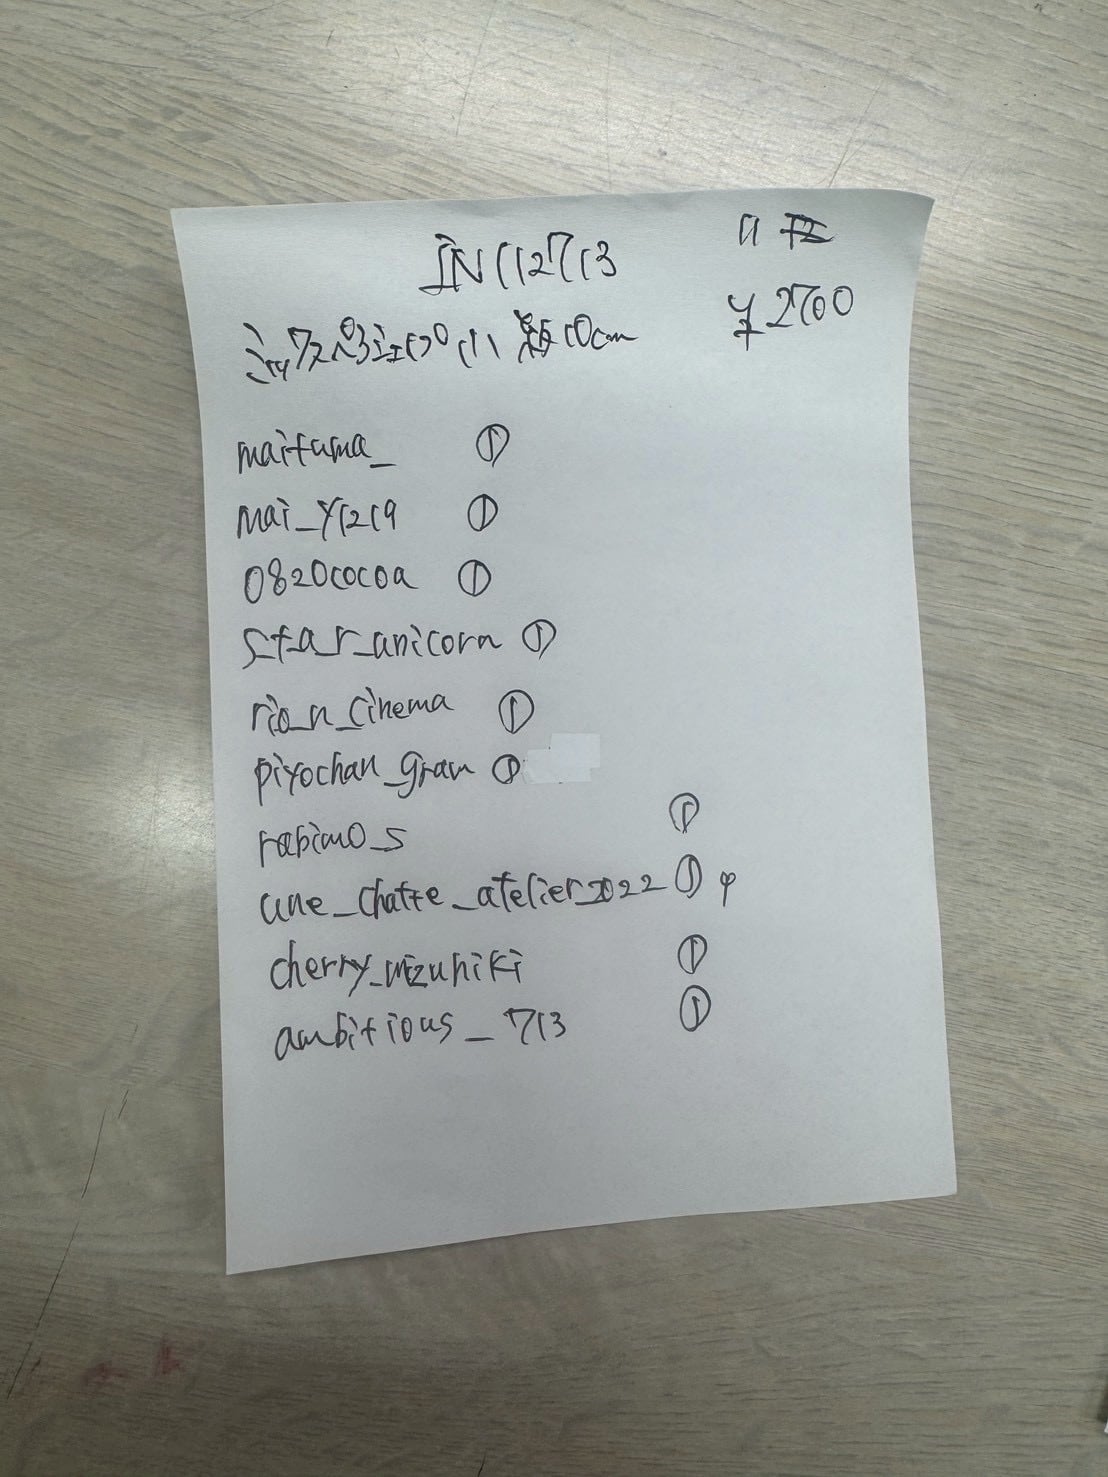 IN112713
¥2700
10cm
maitama_ ①
mai_y1219 ①
0820cocoa ①
star_unicorn ①
rio_n_cinema ①
piyochan_gram ①
rabimo_s ①
une_chatte_atelier_2022 ①
cherry_mizuhiki ①
ambitious_713 ①